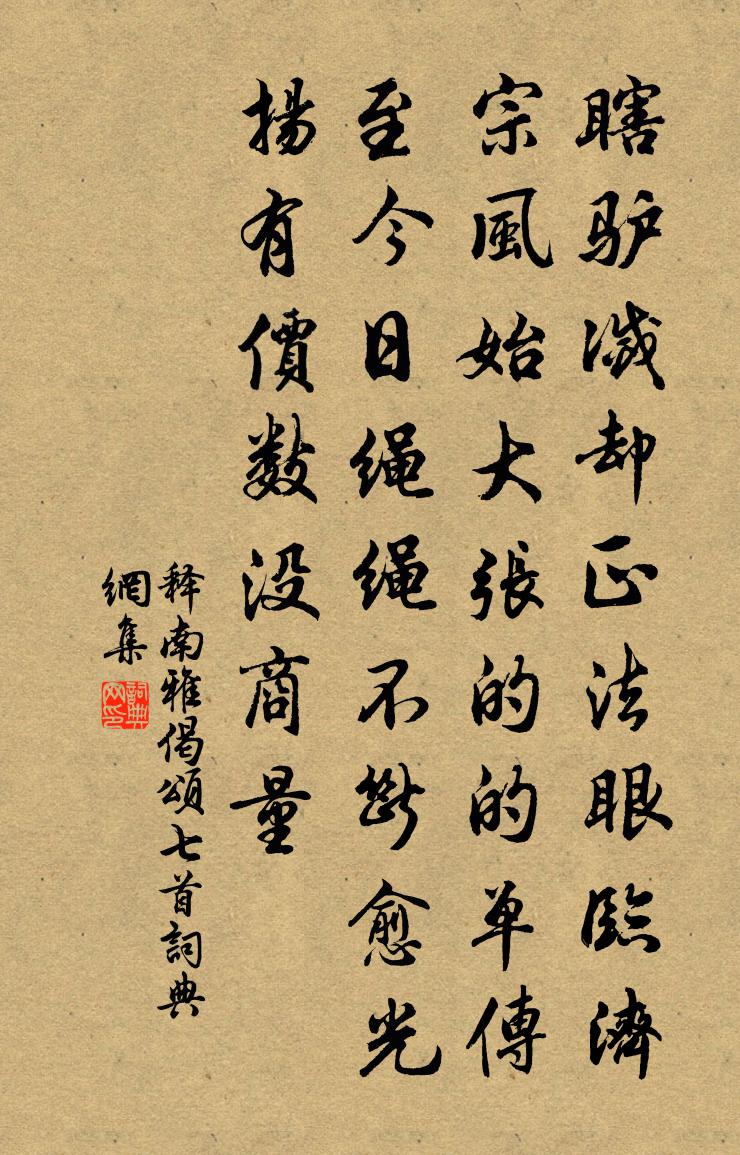 瞎驴灭却正法眼臨濟
宗風始大張的的单傳
至今日绳绳不斷愈光
揚有價数没商量
释南雅偈頌七首詞典
網集
詞典
网印